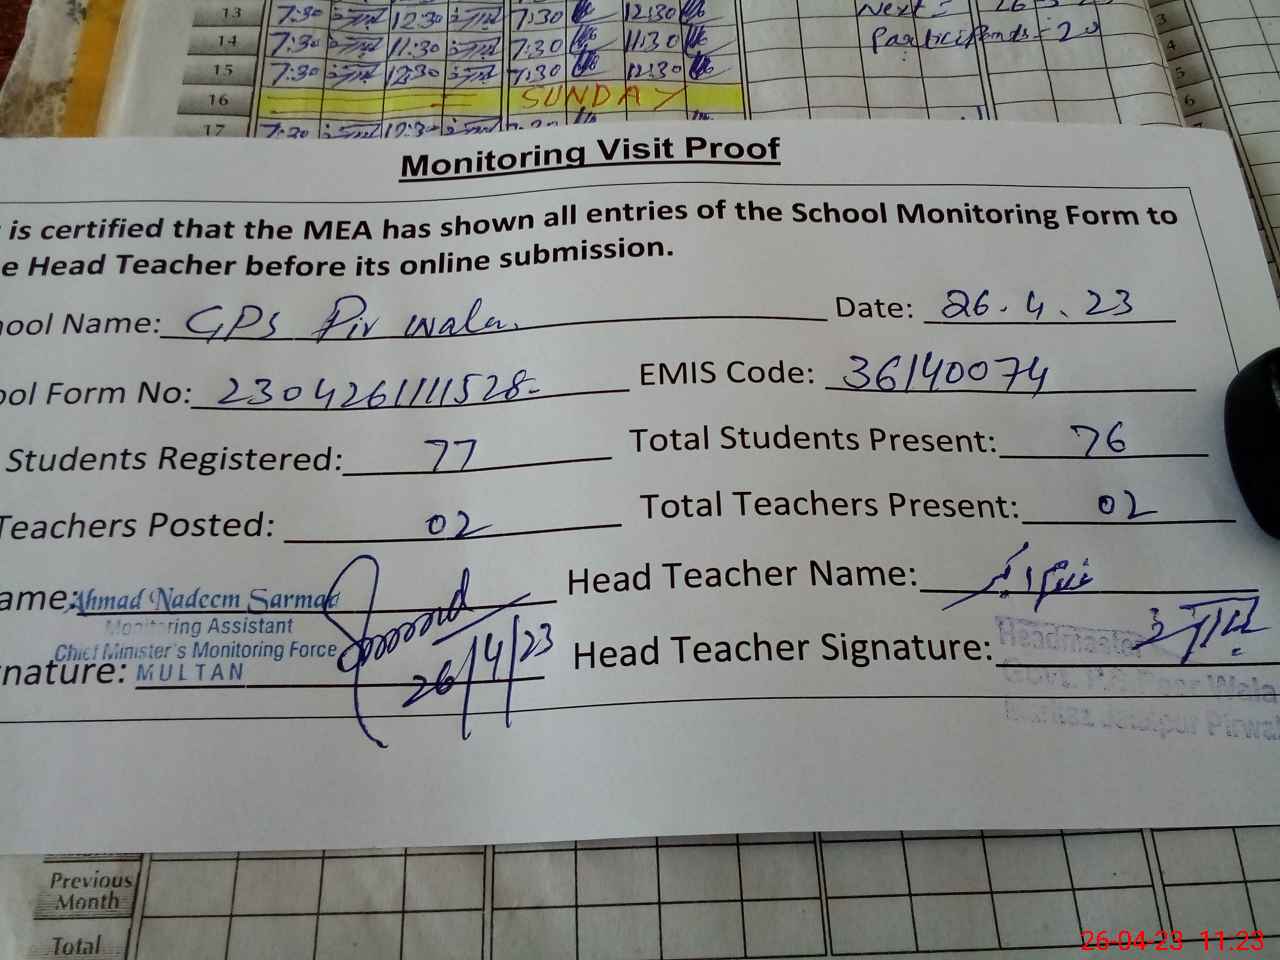 13 7:30 12:30 7:30 12:30 Next =
14 7:30 11:30 7:30 11:30 Participants = 20
15 7:30 12:30 7:30 12:30
16 SUNDAY
17 7:30 12:30
3
4
5
6
Monitoring Visit Proof
is certified that the MEA has shown all entries of the School Monitoring Form to
e Head Teacher before its online submission.
ool Name: GPS Pir wala. Date: 26.4.23
ool Form No: 2304261111528- EMIS Code: 36140074
Students Registered: 77 Total Students Present: 76
Teachers Posted: 02 Total Teachers Present: 02
ame: Ahmad Nadeem Sarmad Head Teacher Name:
Monitoring Assistant
Chief Minister's Monitoring Force
nature: MULTAN 26/4/23 Head Teacher Signature:
Headmaster
Govt. P.S Peer Wala
Markaz Jalalpur Pirwal
Previous
Month
Total
26-04-23 11:23